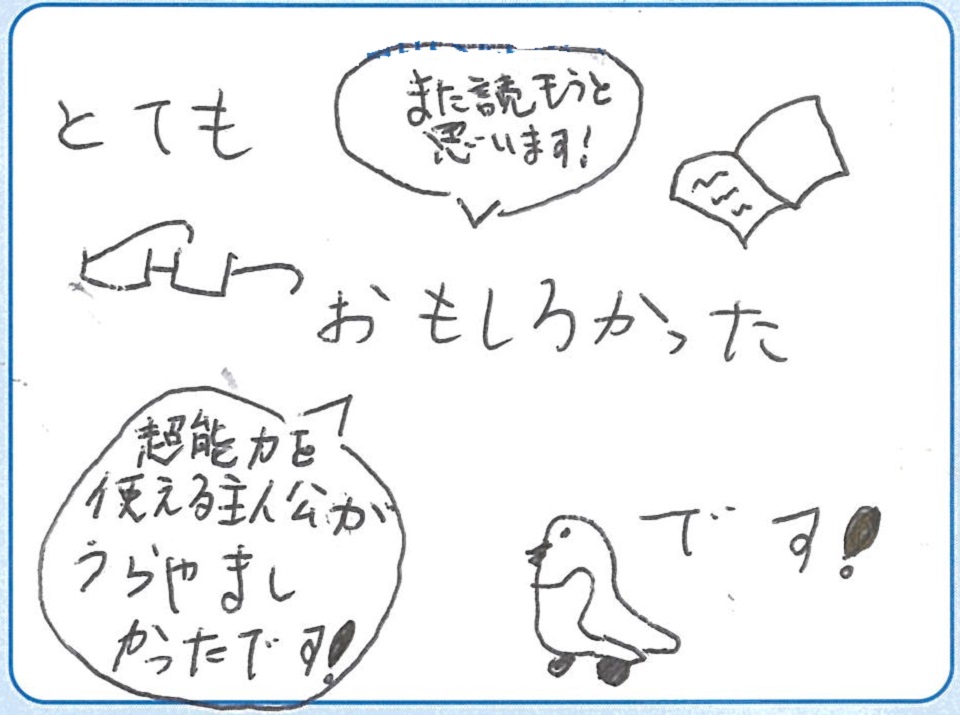 とても
また読もうと
思います!
おもしろかった
超能力を
使える主人公が
うらやまし
かったです!
です!